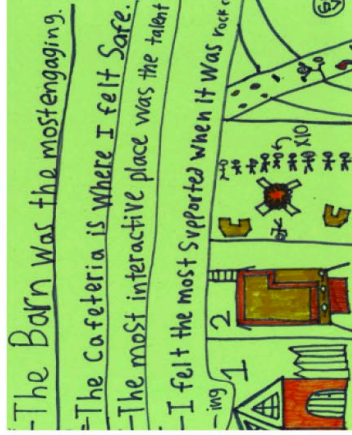 -The Barn was the mostengaging.
-The cafeteria is where I felt Safe.
-The most interactive place was the talent
-I felt the most supported when it was rock c
-ing
1
2
x10